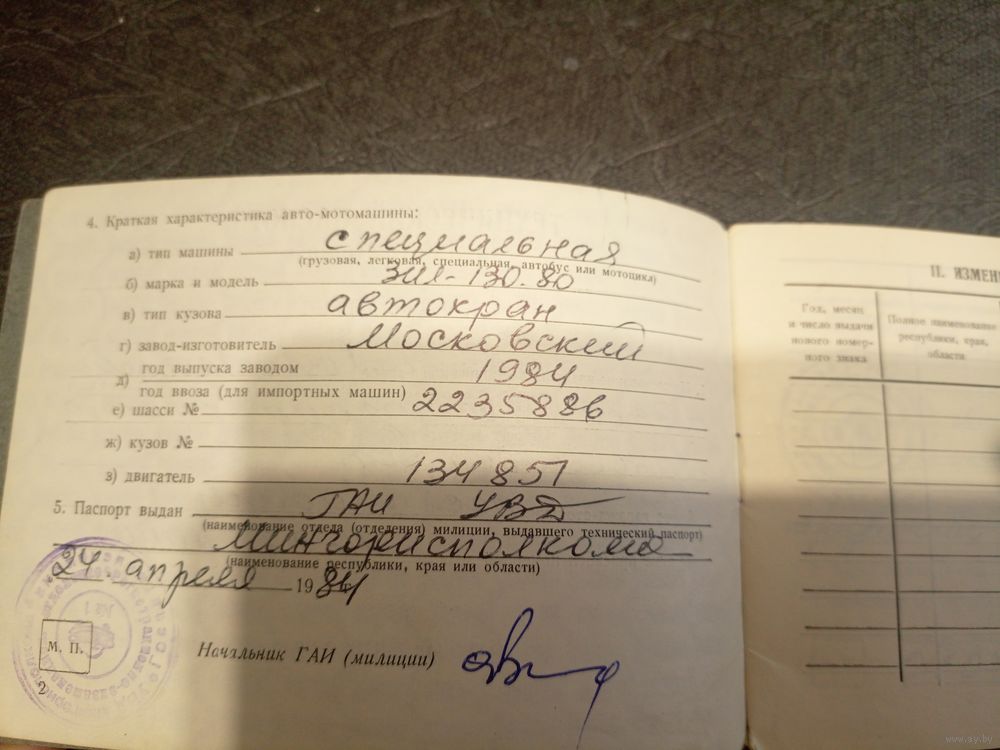 4. Краткая характеристика авто-мотомашины:
а) тип машины специальная
(грузовая, легковая, специальная, автобус или мотоцикл)
б) марка и модель ЗИЛ-130.80
в) тип кузова автокран
г) завод-изготовитель Московский
д) год выпуска заводом 1984
год ввоза (для импортных машин)
е) шасси № 2235886
ж) кузов №
з) двигатель 134851
5. Паспорт выдан ГАИ УВД
(наименование отдела (отделения) милиции, выдавшего технический паспорт)
Мингорисполкома
(наименование республики, края или области)
24 апреля 1984 г.
М. П.
Начальник ГАИ (милиции)
II. ИЗМЕНЕ
Год, месяц
и число выдачи
нового номер-
ного знака
Полное наименование
республики, края,
области
№ 1
2
www.ay.by